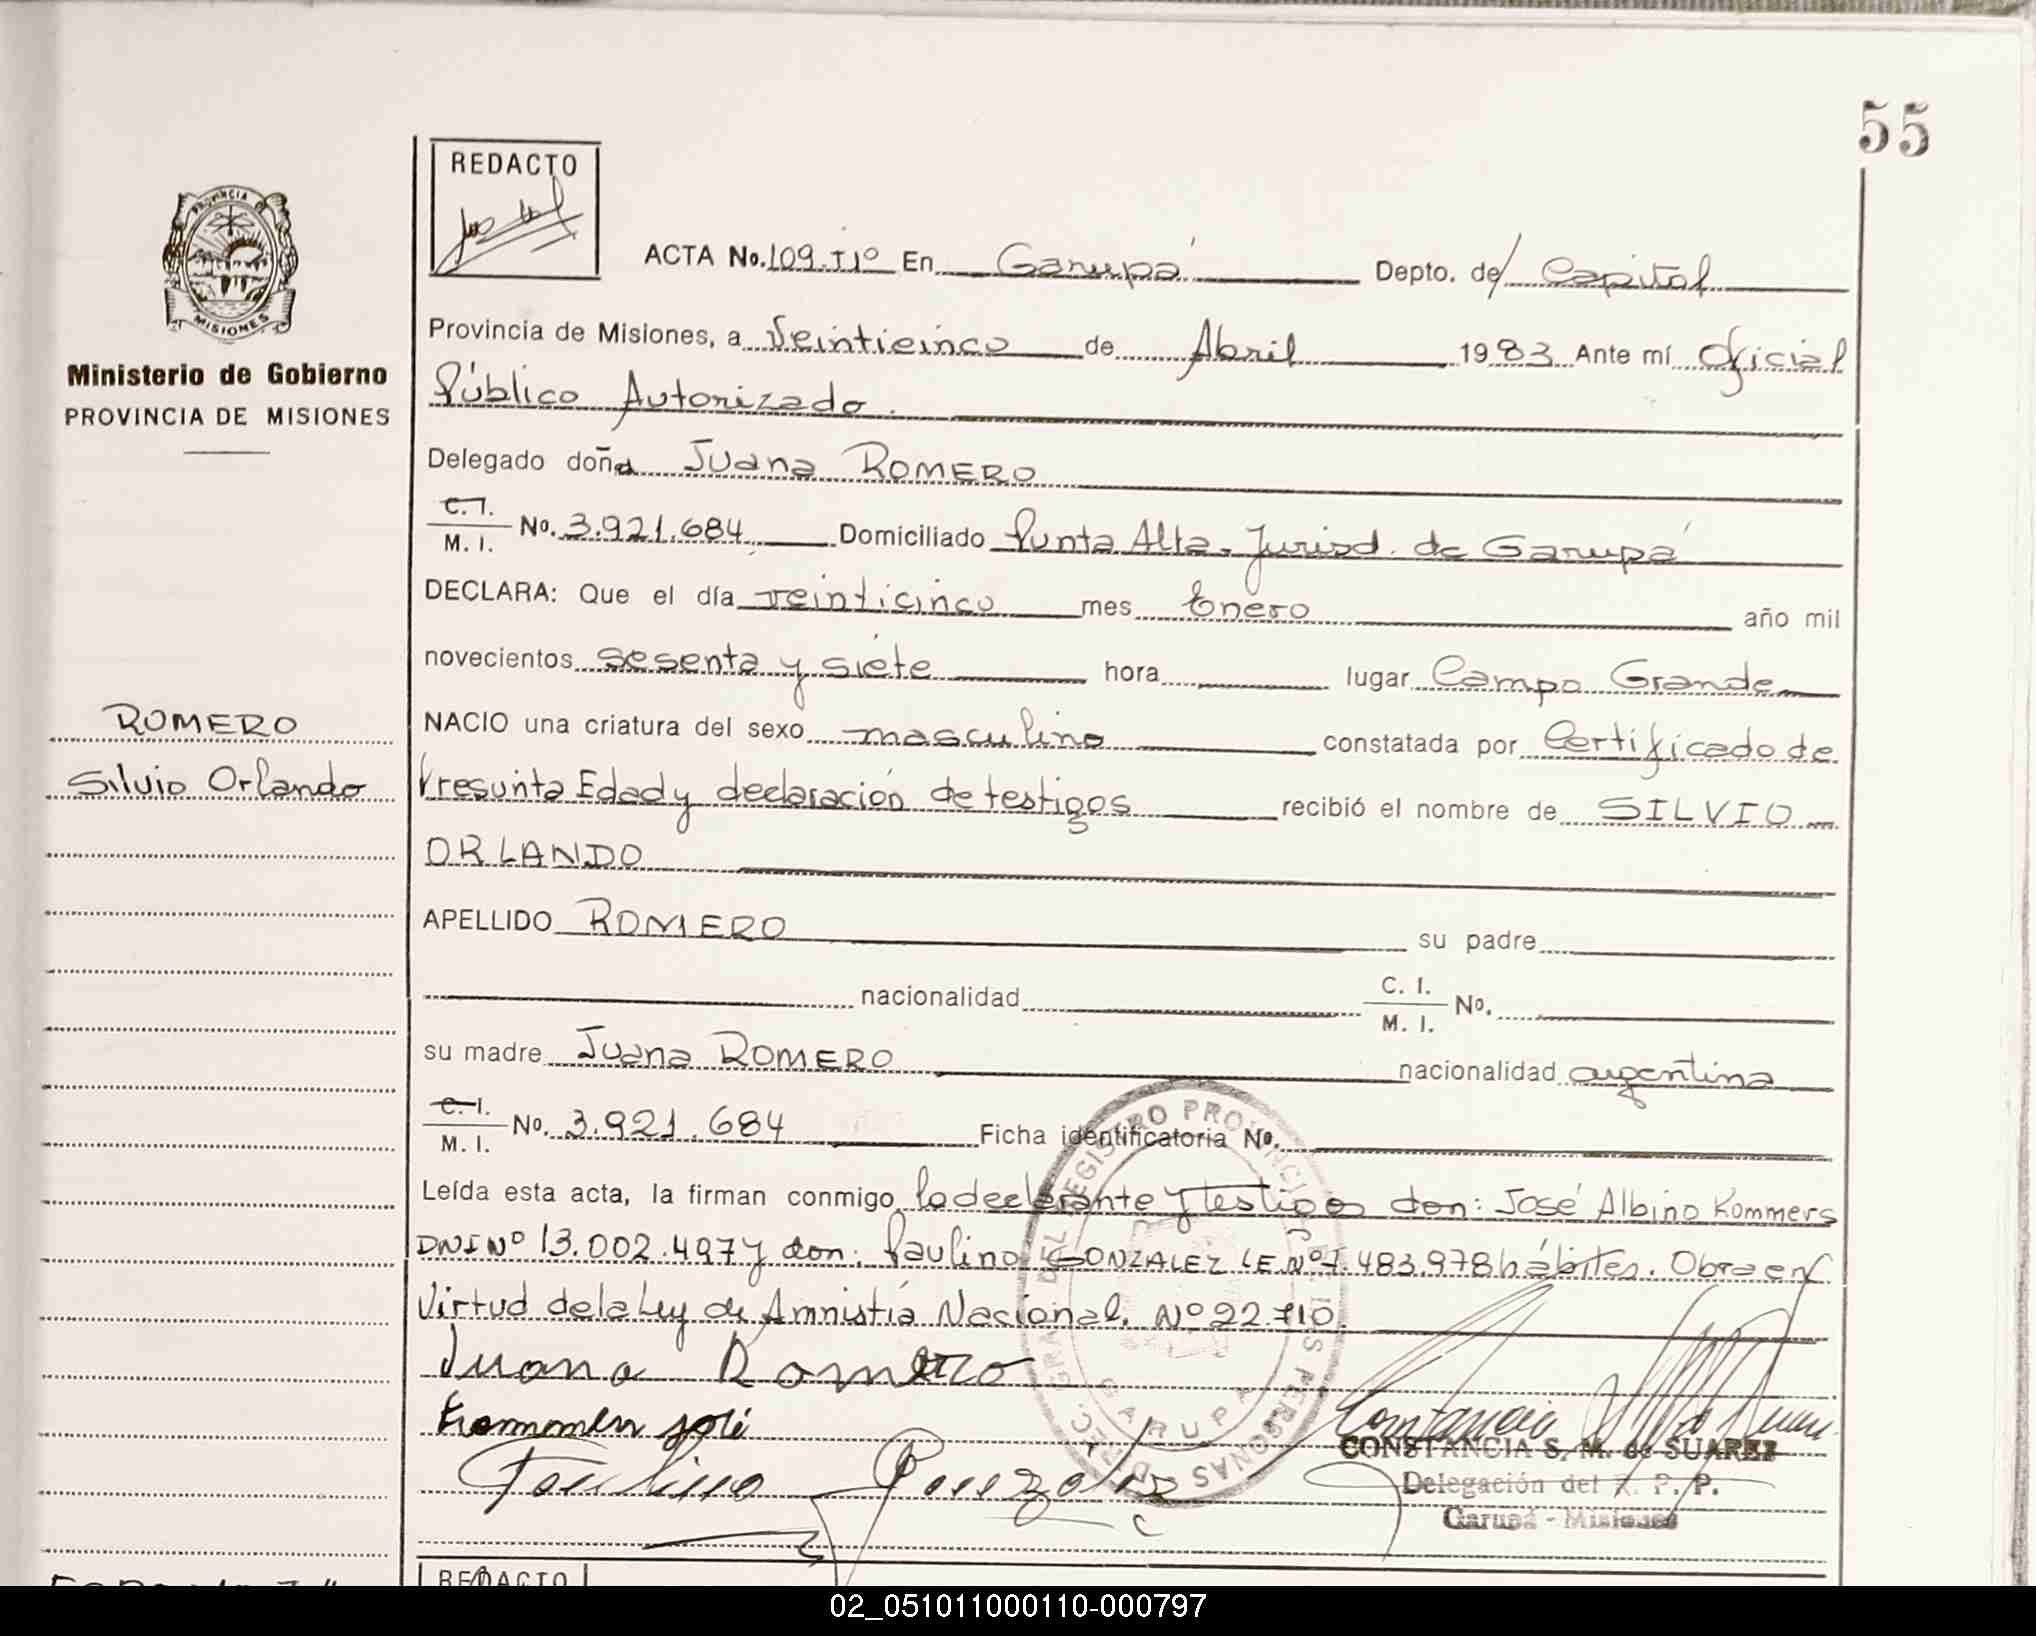 55
REDACTO
PROVINCIA DE
MISIONES
Ministerio de Gobierno
PROVINCIA DE MISIONES
ACTA No. 109. Tº1º En Garupá Depto. de Capital
Provincia de Misiones, a Veinticinco de Abril 1983 Ante mí Oficial
Público Autorizado.
Delegado doña Juana ROMERO
C.I.
M. I. No. 3.921.684 Domiciliado Punta Alta, Jurisd. de Garupá
DECLARA: Que el día veinticinco mes Enero año mil
novecientos sesenta y siete hora lugar Campo Grande
NACIO una criatura del sexo masculino constatada por Certificado de
Presunta Edad y declaración de testigos recibió el nombre de SILVIO
ORLANDO
ROMERO
Silvio Orlando
APELLIDO ROMERO su padre
nacionalidad C. I.
M. I. No.
su madre Juana ROMERO nacionalidad argentina
C.I.
M. I. No. 3.921.684 Ficha identificatoria No.
Leída esta acta, la firman conmigo la declarante y testigos don: José Albino Kommers
DNI Nº 13.002.497 y don: Paulino GONZALEZ LE Nº 7.483.978 hábiles. Obra en
Virtud de la Ley de Amnistía Nacional. Nº 22.710.
Juana Romero
Kommers José
Paulino Gonzalez
DIREC. GRAL. DEL REGISTRO PROVINCIAL DE LAS PERSONAS
GARUPA
CONSTANCIA S. M. de SUAREZ
Delegación del R. P. P.
Garupá - Misiones
REDACTO
02_051011000110-000797